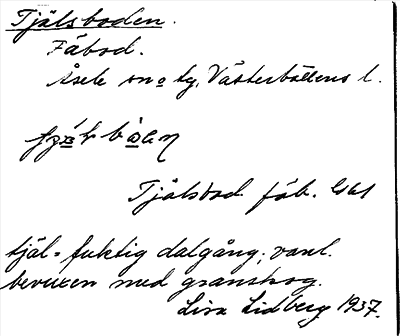 Tjälsboden.
Fäbod.
Åsele sn o tg, Västerbottens l.
Tjälsbod fäb. GSA
tjäl = fuktig dalgång, vanl.
bevuxen med granskog.
Lisa Lidberg 1937.